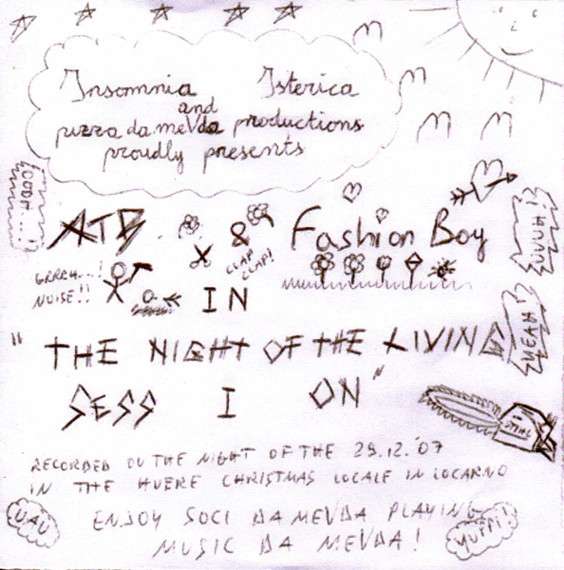 Insomnia Isterica
and
puzza da meVda productions
proudly presents
OODH...!
ATB & Fashion Boy
CLAP
CLAP!
UUUH!?
GRRRH...!
NOISE!!
IN
YEAH!?
"THE NIGHT OF THE LIVING
SESS I ON"
STIHL
RECORDED ON THE NIGHT OF THE 29.12.'07
IN THE HUERE CHRISTMAS LOCALE IN LOCARNO
UAU
ENJOY SOCI DA MEVDA PLAYING
MUSIC DA MEVDA!
YUPPI!